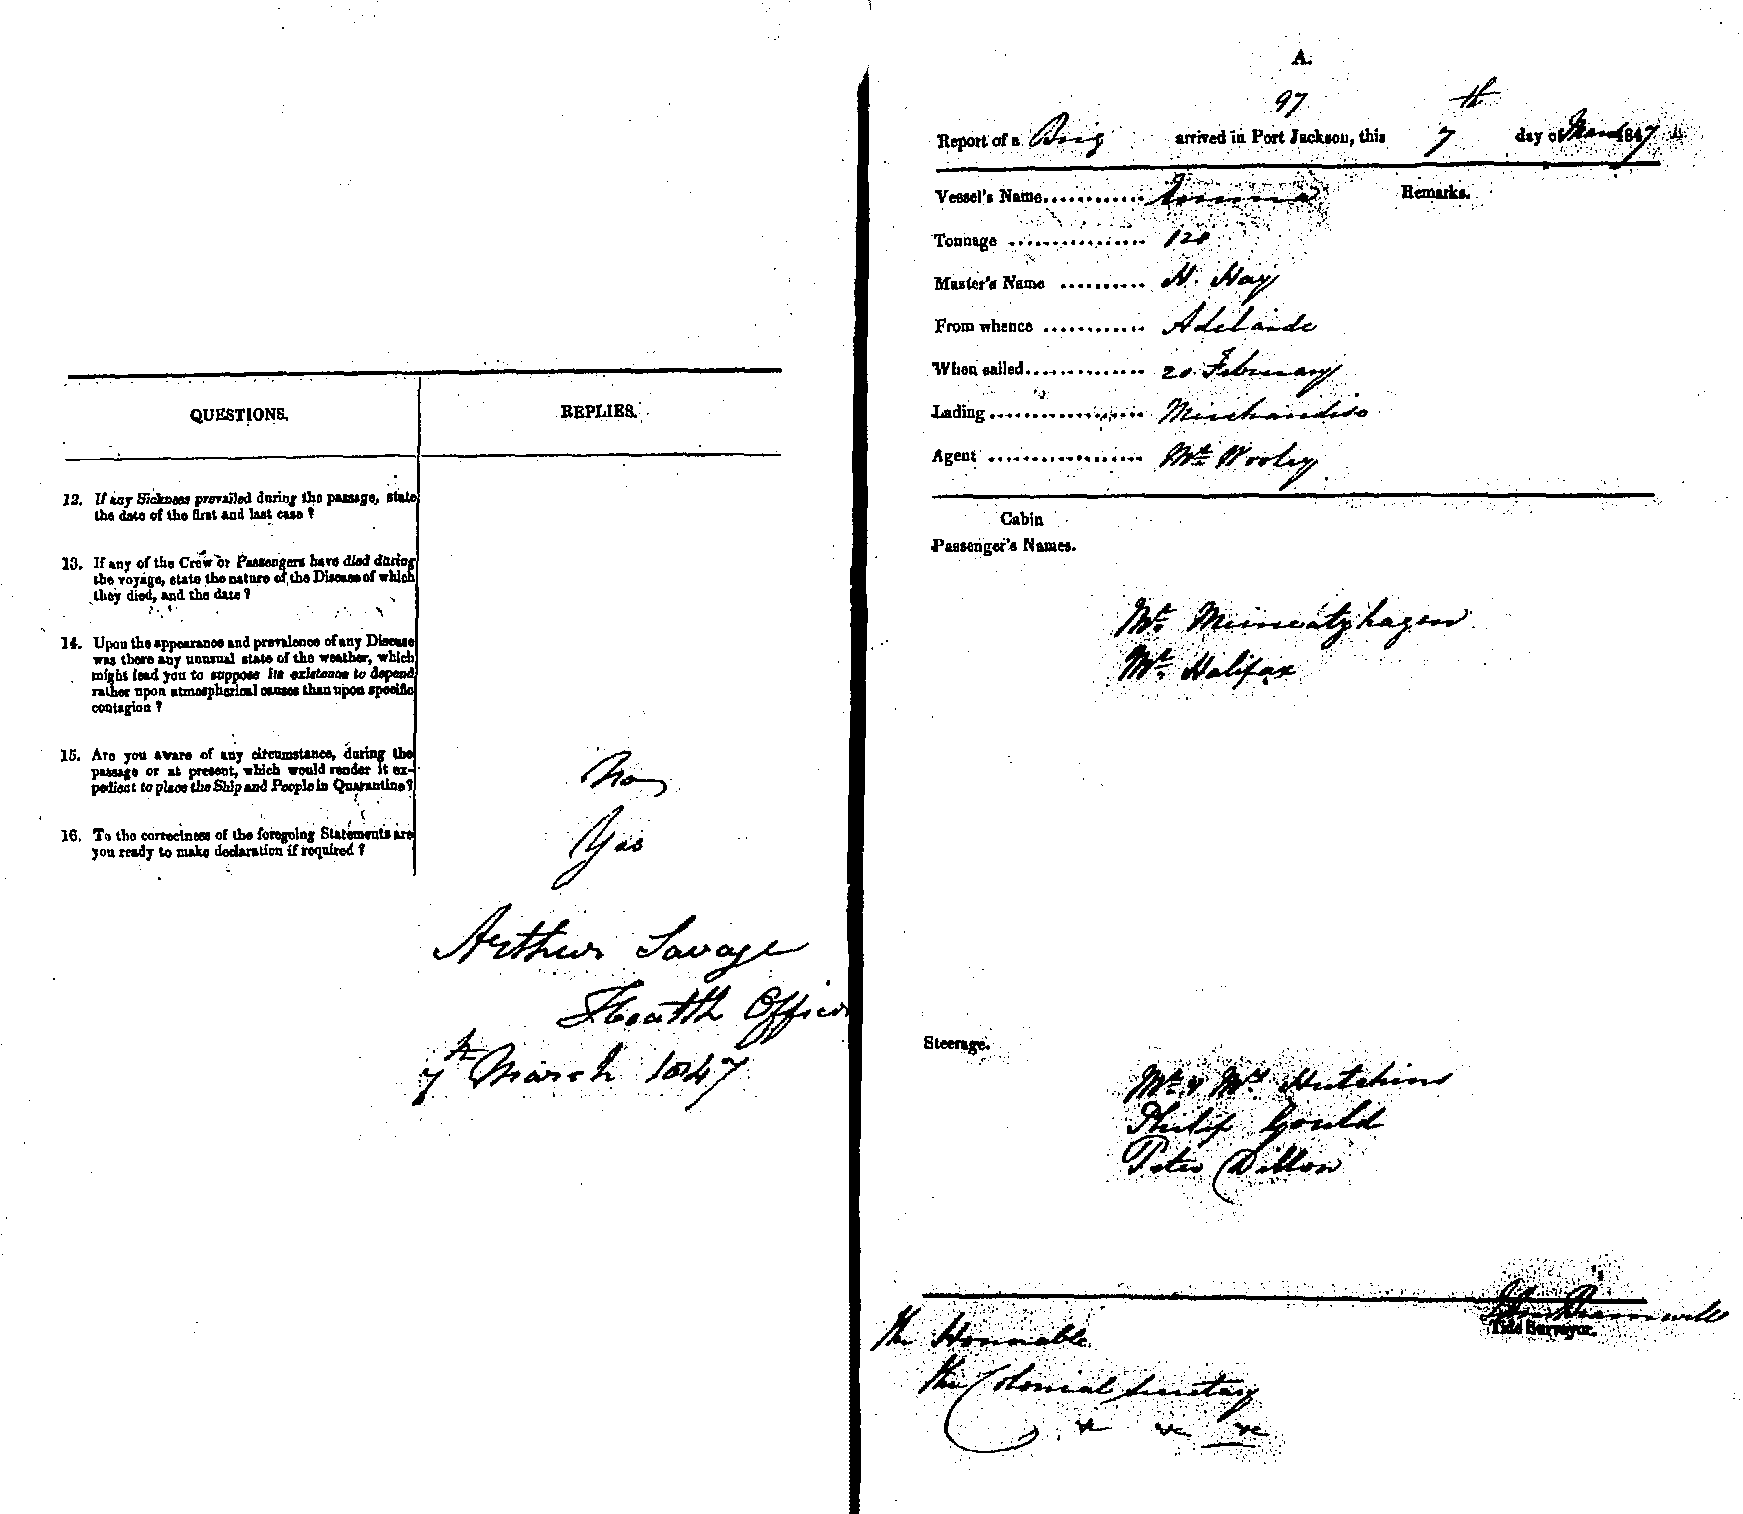 QUESTIONS.
REPLIES.
12. If any Sickness prevailed during the passage, state
the date of the first and last case ?
13. If any of the Crew or Passengers have died during
the voyage, state the nature of the Disease of which
they died, and the date ?
14. Upon the appearance and prevalence of any Disease
was there any unusual state of the weather, which
might lead you to suppose its existence to depend
rather upon atmospherical causes than upon specific
contagion ?
15. Are you aware of any circumstance, during the
passage or at present, which would render it ex-
pedient to place the Ship and People in Quarantine ?
No
16. To the correctness of the foregoing Statements are
you ready to make declaration if required ?
Yes
Arthur Savage
Health Officer
7th March 1847
A.
97
Report of a Brig arrived in Port Jackson, this 7th day of March 1847
Vessel's Name............ Emma
Remarks.
Tonnage ................ 120
Master's Name .......... H. Hay
From whence ............ Adelaide
When sailed.............. 20 February
Lading.................. Merchandise
Agent .................. Mr
Cabin
Passenger's Names.
Mr.
Mr. Halifax
Steerage.
Mr & Mrs Hutchins
Philip Gould
Peter Dillon
Tide Surveyor.
The Honorable
The Colonial Secretary
&c &c &c